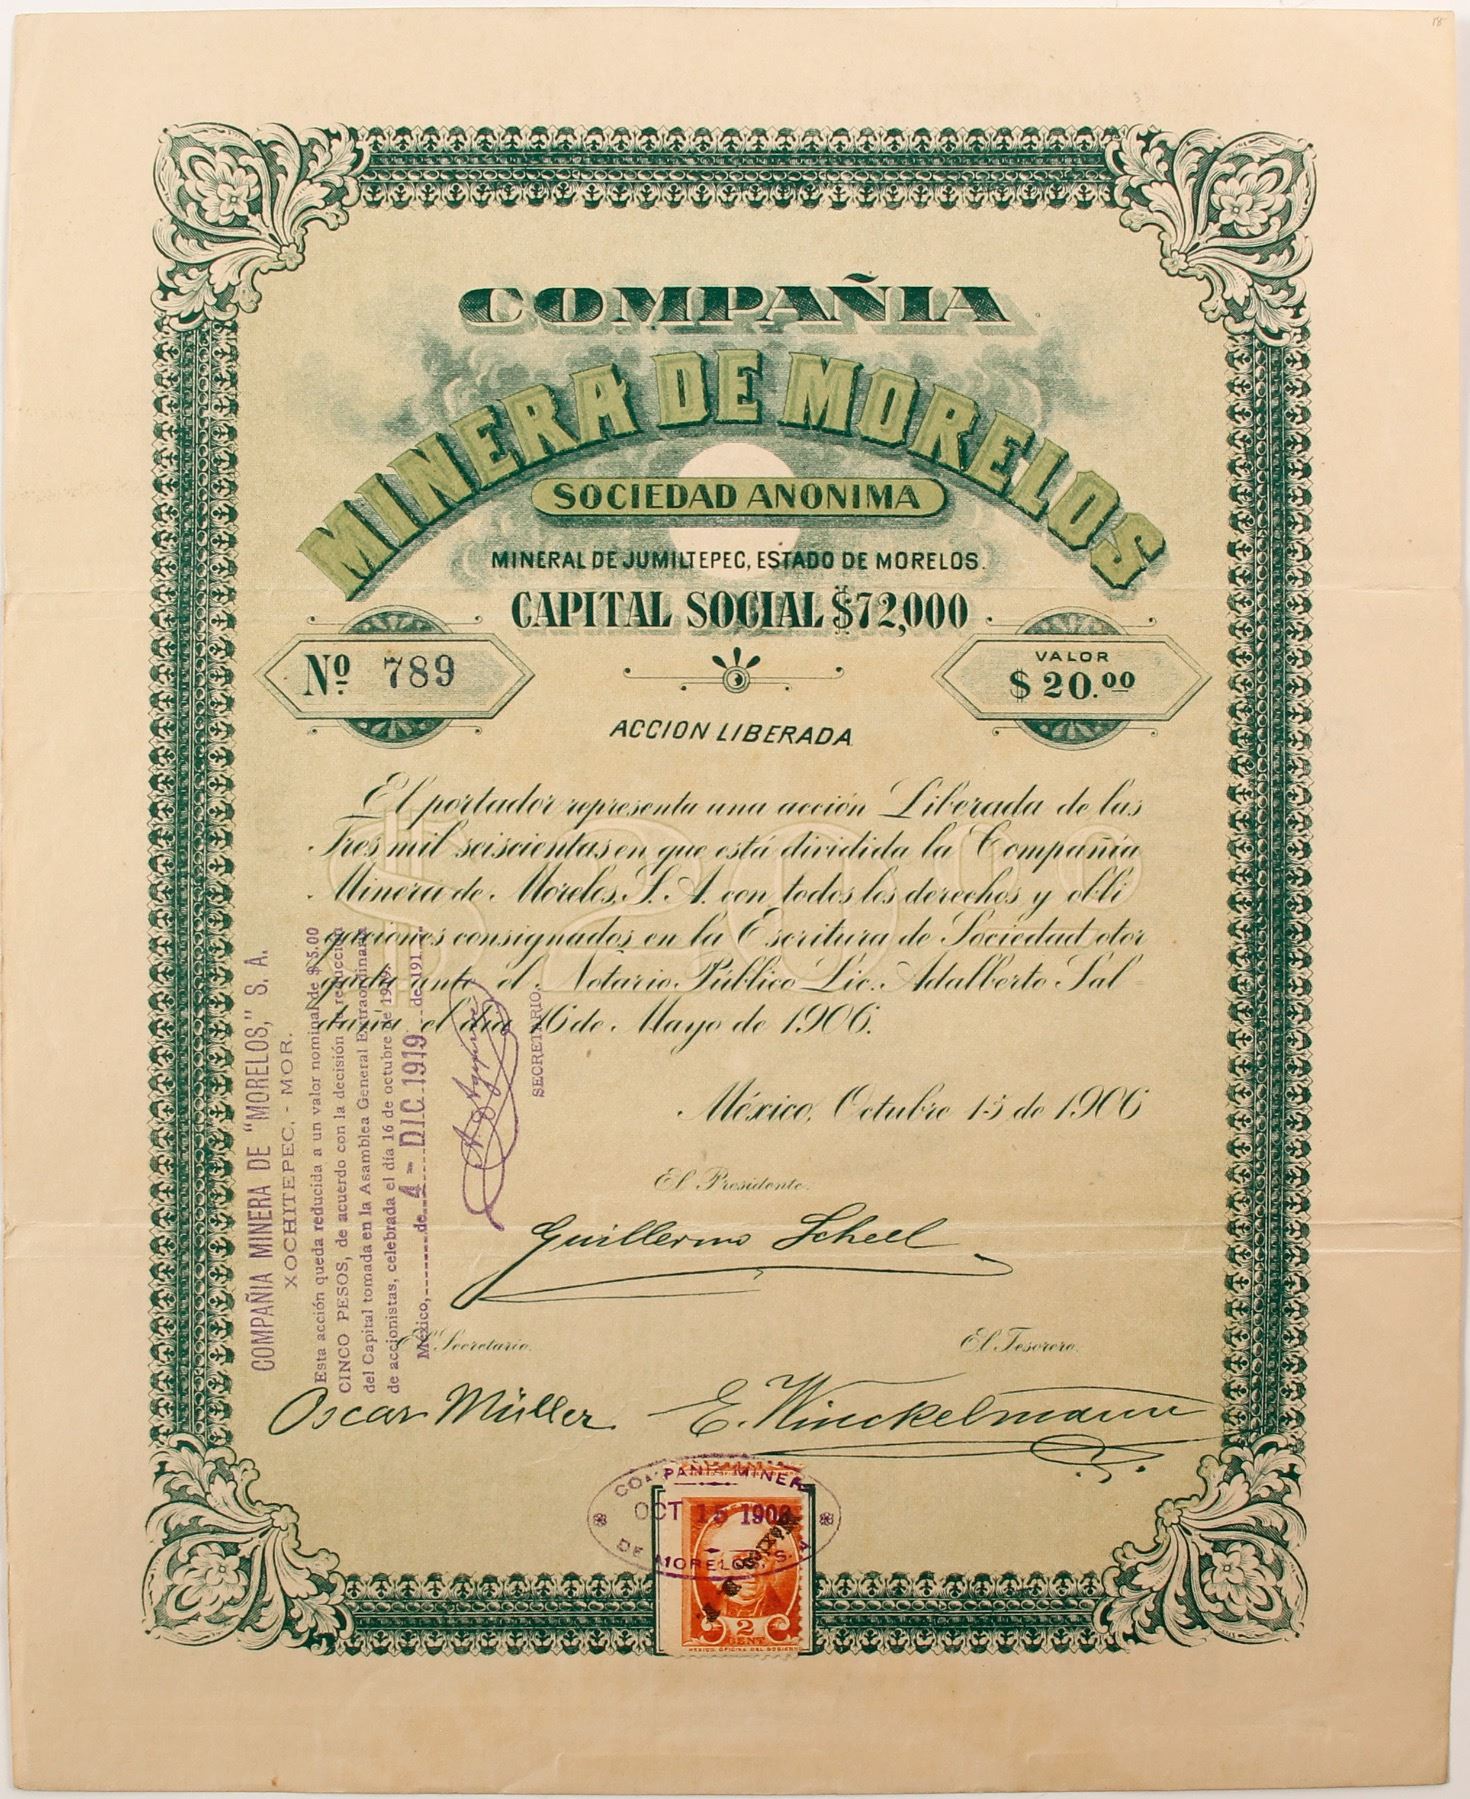 COMPAÑIA
MINERA DE MORELOS
SOCIEDAD ANONIMA
MINERAL DE JUMILTEPEC, ESTADO DE MORELOS.
CAPITAL SOCIAL $72,000
Nº 789
VALOR
$20.00
ACCION LIBERADA
El portador representa una acción Liberada de las
Tres mil seiscientas en que está dividida la Compañía
Minera de Morelos, S. A. con todos los derechos y obli
gaciones consignados en la Escritura de Sociedad otor
gada ante el Notario Público Lic. Adalberto Sal
daña el día 16 de Mayo de 1906.
$20.00
México, Octubre 15 de 1906
El Presidente.
Guillermo Scheel
El Secretario.
Oscar Müller
El Tesorero.
E. Winckelmann
COMPAÑIA MINERA DE "MORELOS," S. A.
XOCHITEPEC, - MOR.
Esta acción queda reducida a un valor nominal de $ 5.00
CINCO PESOS, de acuerdo con la decisión de reducción
del Capital tomada en la Asamblea General Extraordinaria
de accionistas, celebrada el día 16 de octubre de 1919.
México, de 4 - DIC. 1919 de 191
SECRETARIO.
COMPAÑIA MINERA
OCT 15 1906
DE MORELOS, S. A.
2
CENT
MEXICO OFICINA DEL GOBIERNO